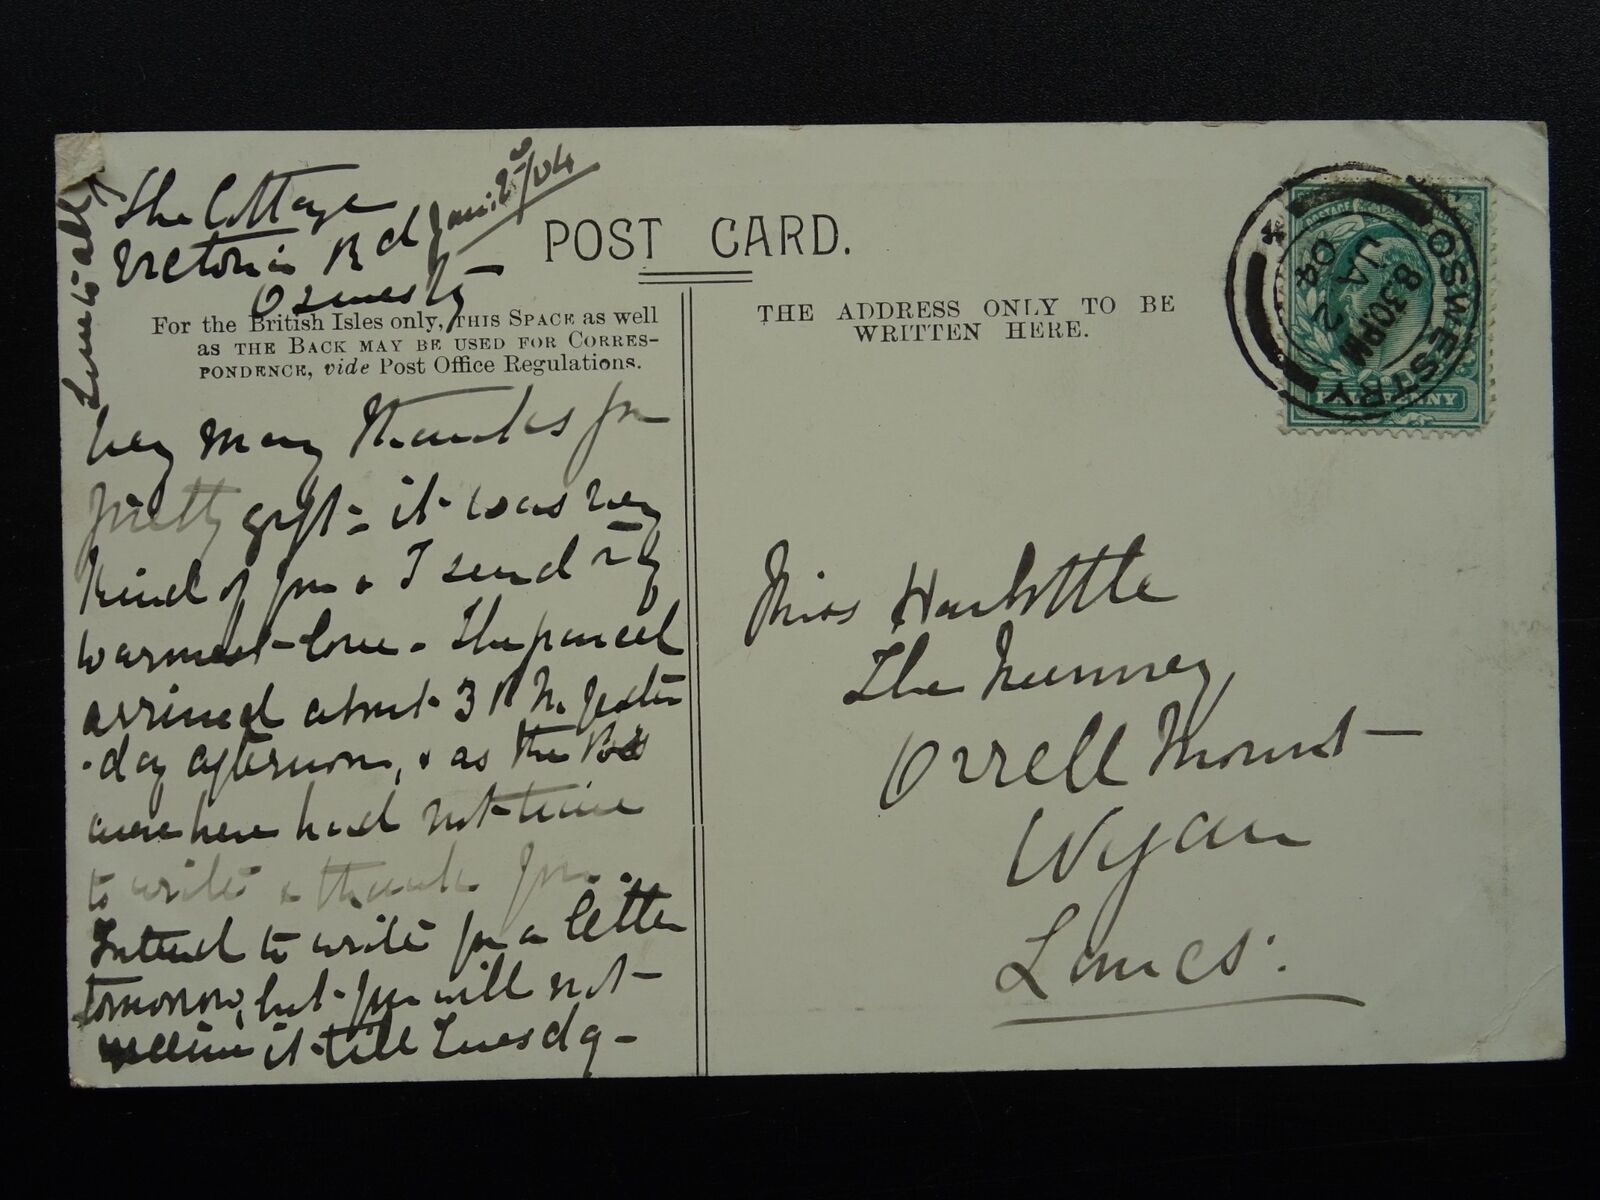 The Cottage
Victoria Rd Jan: 2nd/04
Oswestry
Love to all
POST CARD.
For the British Isles only, THIS SPACE as well
as THE BACK MAY BE USED FOR CORRES-
PONDENCE, vide Post Office Regulations.
THE ADDRESS ONLY TO BE
WRITTEN HERE.
OSWESTRY
8.30PM
JA 2
04
POSTAGE
HALFPENNY
Very many thanks for
pretty gift - it was very
kind of you & I send my
warmest love. The parcel
arrived about 3 P.M. yester
-day afternoon, & as the
were here had not time
to write & thank you.
Intend to write you a letter
tomorrow, but you will not
receive it till Tuesday -
Miss Harbottle
The Nunnery
Orrell Mount
Wigan
Lancs: